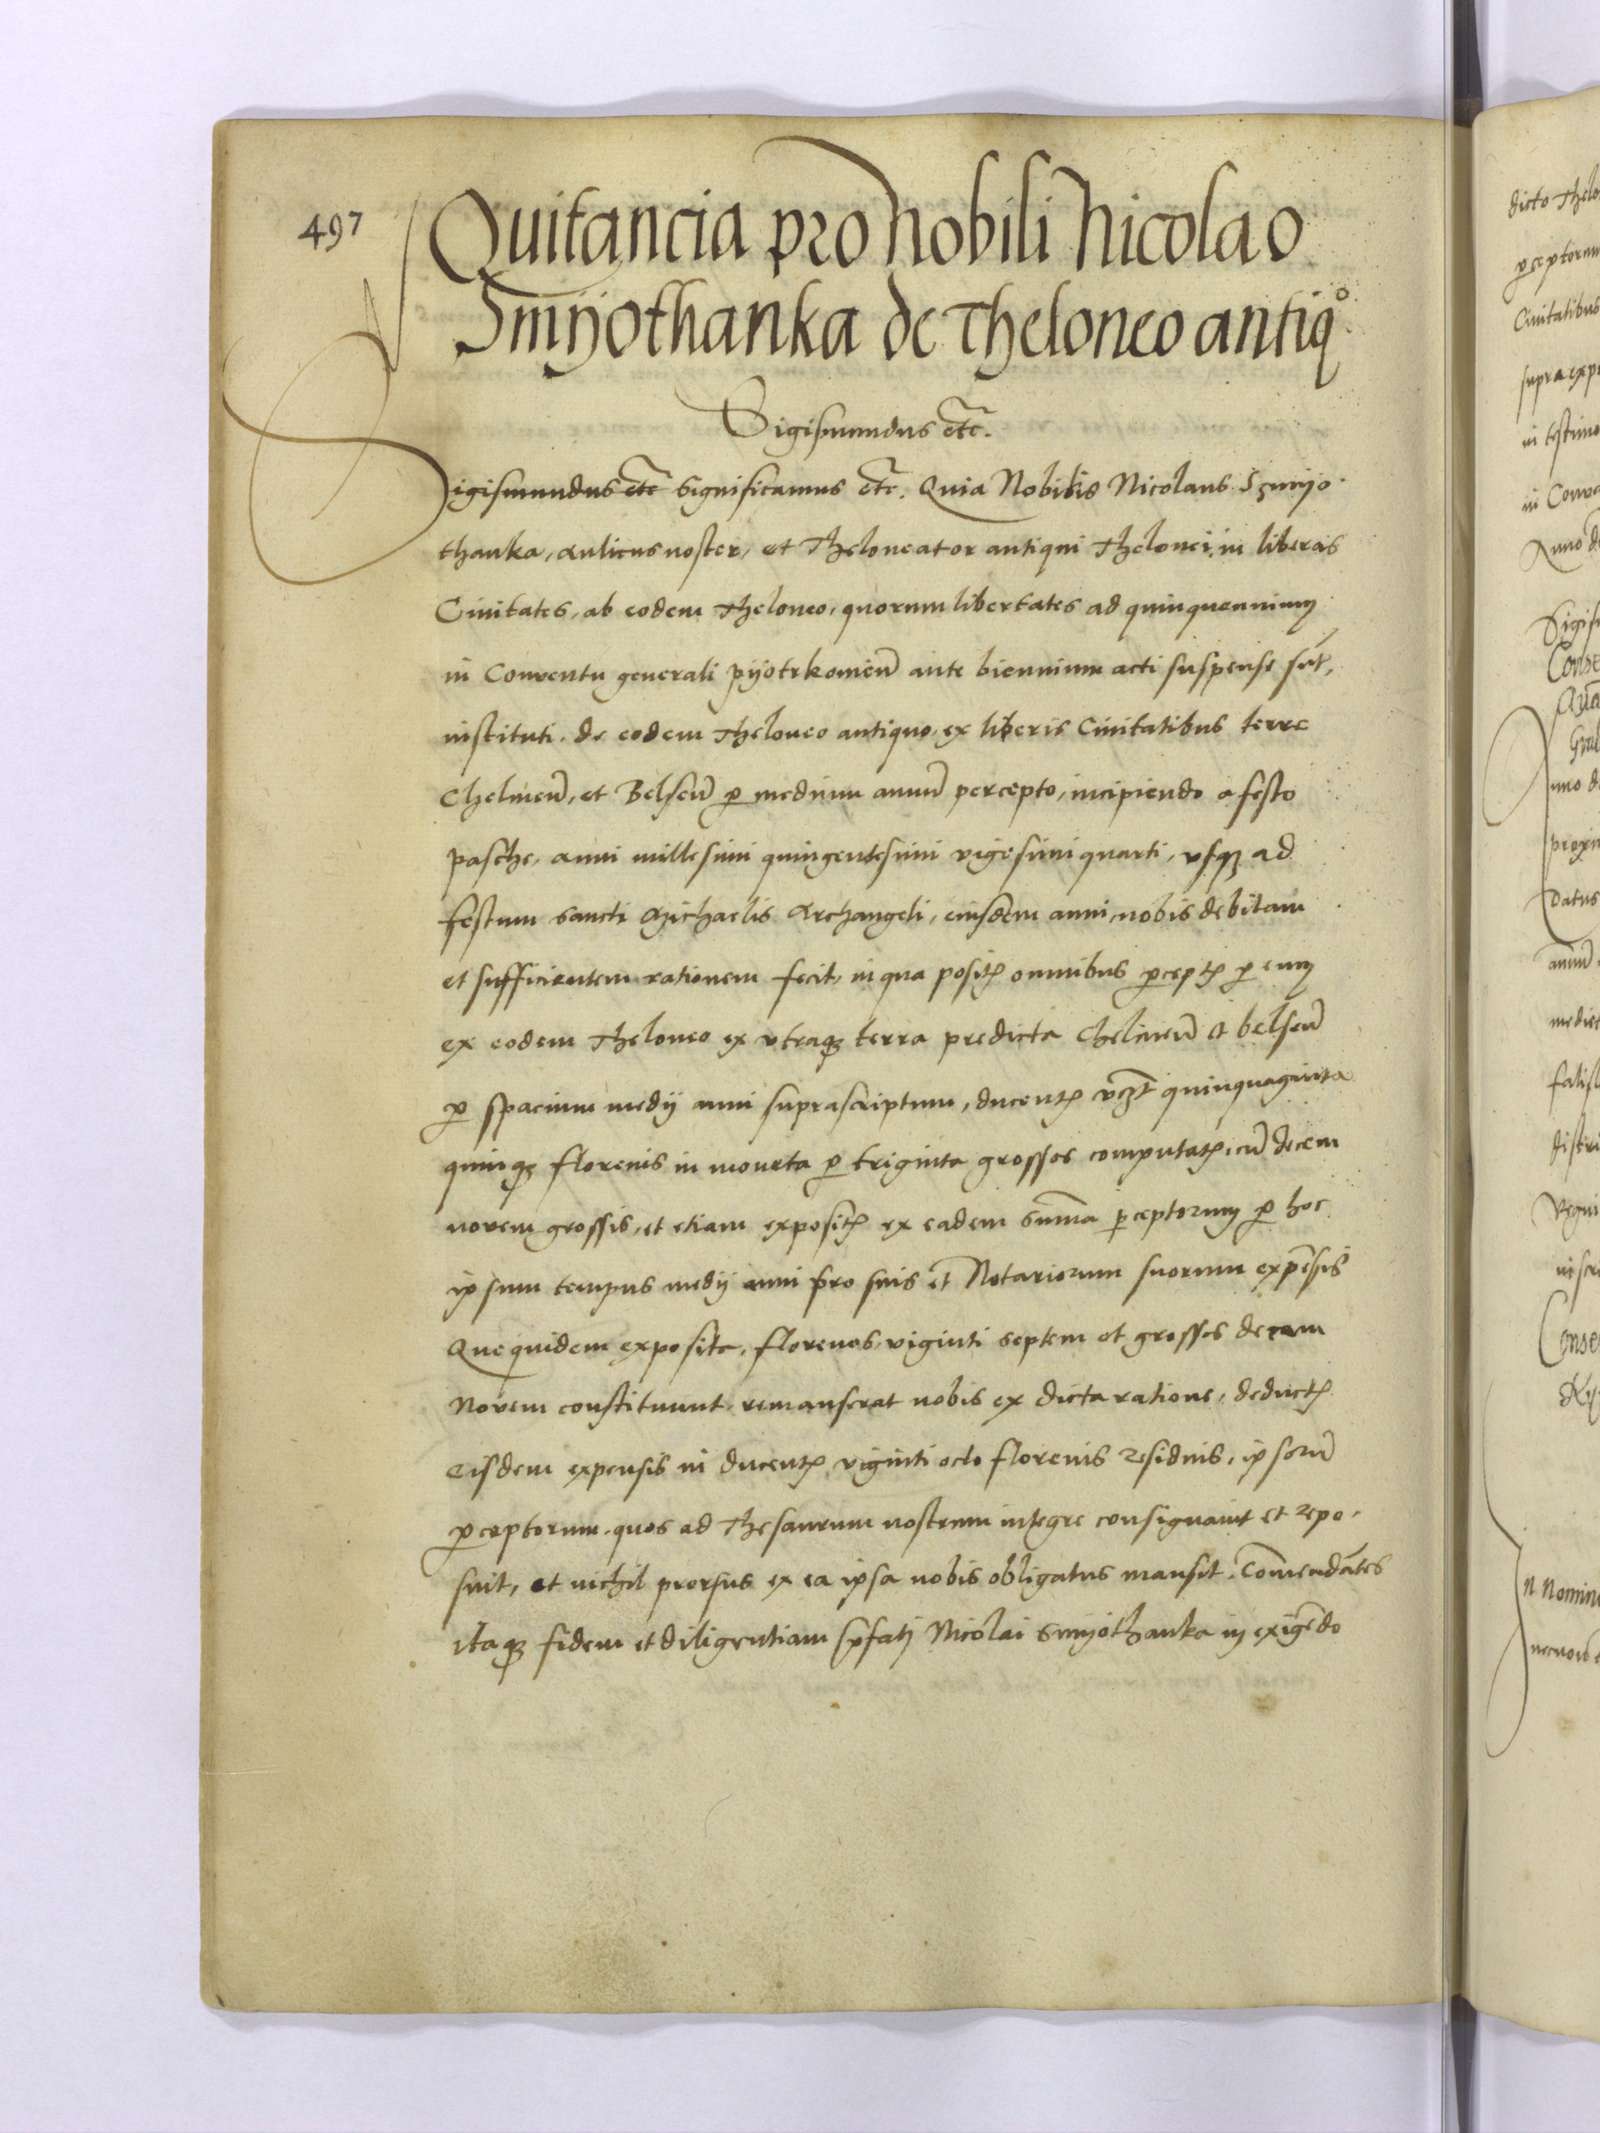 497
Quitancia pro Nobili Nicolao
Smyothanka de Theloneo antiqº
Sigismundus etc̃.
Sigismundus etc̃ Significamus etc̃. Quia Nobilis Nicolaus Szmyo-
thanka, aulicus noster, et Theloneator antiqui Thelonei, in liberas
Ciuitates, ab eodem Theloneo, quorum libertates ad quinquennium
in Conuentu generali pyotrkouieñ ante biennium acti suspense sũt,
instituti. de eodem Theloneo antiquo ex liberis Ciuitatibus terre
Chelmeñ, et Belseñ ꝑ medium annũ percepto, incipiendo a festo
pasche, anni millesimi quingentesimi vigesimi quarti, vsqꝫ ad
festum sancti Michaelis Archangeli, eiusdem anni, nobis debitam
et sufficientem rationem fecit, in qua positꝭ omnibus ꝑceptꝭ ꝑ eum
ex eodem Theloneo ex vtraqꝫ terra predicta Chelmeñ et belseñ
ꝑ spacium medij anni suprascriptum, ducentꝭ vcꝫt quinquaginta
quinqꝫ florenis in moneta ꝑ triginta grossos computatꝭ, cũ decem
novem grossis, et etiam expositꝭ ex eadem sum̃a ꝑceptorum ꝑ hoc
ipsum tempus medij anni pro suis et Notariorum suorum expẽsis
Que quidem exposita, florenos viginti septem et grossos decem
Novem constituunt, remanserat nobis ex dicta ratione, deductꝭ
Eisdem expensis in ducentꝭ viginti octo florenis residuis, ipsorũ
ꝑceptorum. quos ad Thesaurum nostrum integre consignauit et repo-
suit, et nichil prorsus ex ea ipsa nobis obligatus mansit. Com̃endãtes
itaqꝫ fidem et diligentiam p̃fatj Nicolai Smyothanka in exigẽdo